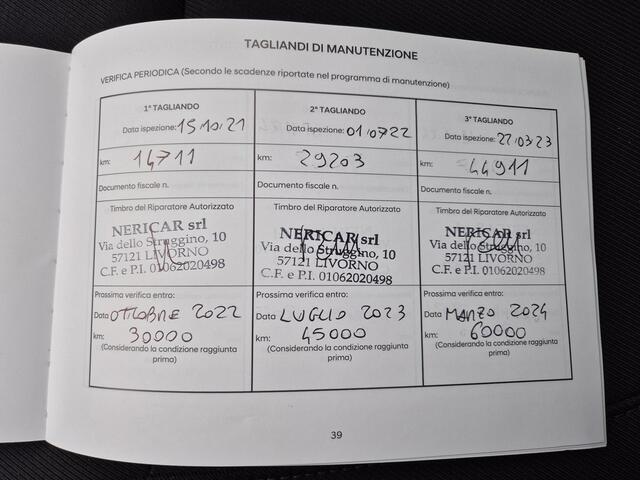 TAGLIANDI DI MANUTENZIONE
VERIFICA PERIODICA (Secondo le scadenze riportate nel programma di manutenzione)
1° TAGLIANDO
Data ispezione: 15 10/21
km: 14711
Documento fiscale n.
Timbro del Riparatore Autorizzato
NERICAR srl
Via dello Struggino, 10
57121 LIVORNO
C.F. e P.I. 01062020498
Prossima verifica entro:
Data OTTOBRE 2022
km: 30000
(Considerando la condizione raggiunta
prima)
2° TAGLIANDO
Data ispezione: 01/07/22
km: 29203
Documento fiscale n.
Timbro del Riparatore Autorizzato
NERICAR srl
Via dello Struggino, 10
57121 LIVORNO
C.F. e P.I. 01062020498
Prossima verifica entro:
Data LUGLIO 2023
km: 45000
(Considerando la condizione raggiunta
prima)
3° TAGLIANDO
Data ispezione: 22/03/23
km: 44911
Documento fiscale n.
Timbro del Riparatore Autorizzato
NERICAR srl
Via dello Struggino, 10
57121 LIVORNO
C.F. e P.I. 01062020498
Prossima verifica entro:
Data MARZO 2024
km: 60000
(Considerando la condizione raggiunta
prima)
39